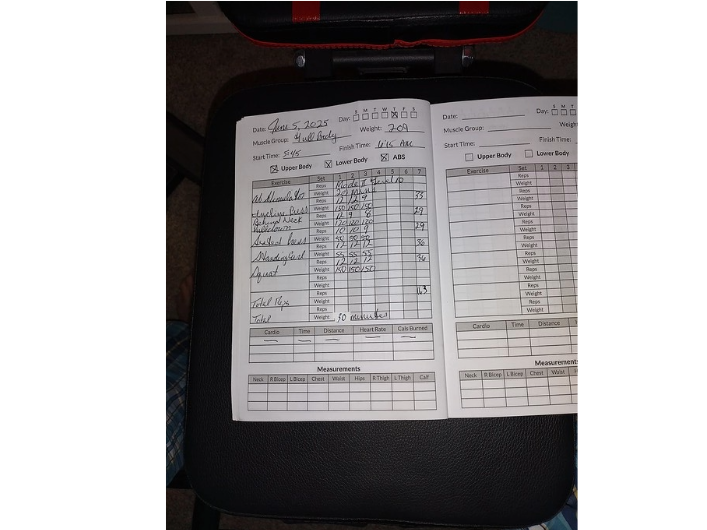 Date: June 5, 2025 Day: S M T W T F S
Muscle Group: Full Body Weight: 209
Start Time: 5:45 Finish Time: 6:15 AM
Upper Body Lower Body ABS
Exercise Set 1 2 3 4 5 6 7
Reps Mode 1 Level 10
Ab Stimulator Weight 30 Minutes
Reps 12 12 9 33
Weight 150 150 150
Behind Neck Reps 12 9 8 29
Pulldown Weight 120 120 120
Reps 10 10 9 29
Seated Press Weight 50 50 50
Reps 12 12 12 36
Standing Curl Weight 55 55 55
Reps 12 12 12 36
Squat Weight 150 150 150
Reps
Weight
Reps 163
Total Reps Weight
Reps
Total Weight 30 minutes
Cardio Time Distance Heart Rate Cals Burned
Measurements
Neck R Bicep L Bicep Chest Waist Hips R Thigh L Thigh Calf
Date: Day: S M T W T F S
Muscle Group: Weight
Start Time: Finish Time:
Upper Body Lower Body
Exercise Set 1 2 3
Reps
Weight
Reps
Weight
Reps
Weight
Reps
Weight
Reps
Weight
Reps
Weight
Reps
Weight
Reps
Weight
Reps
Weight
Cardio Time Distance
Measurements
Neck R Bicep L Bicep Chest Waist